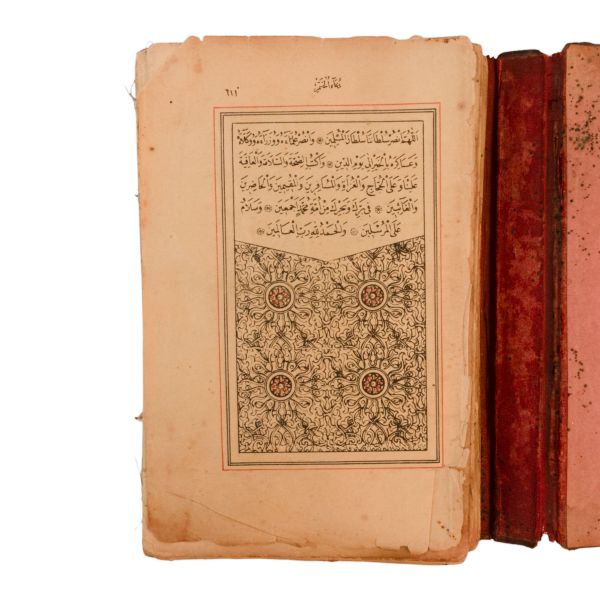 دعاء الختم
٦١١
اللهم انصر سلطاننا سلطان المسلمين وانصر علماءه ووزراءه ووكلاه
وعساكره بالخير الى يوم الدين واكتب الصحة والسلامة والعافية
علينا وعلى الحجاج والغزاة والمسافرين والمقيمين والحاضرين
والغائبين فى برك وبحرك من امة محمد اجمعين وسلام
على المرسلين والحمد لله رب العالمين